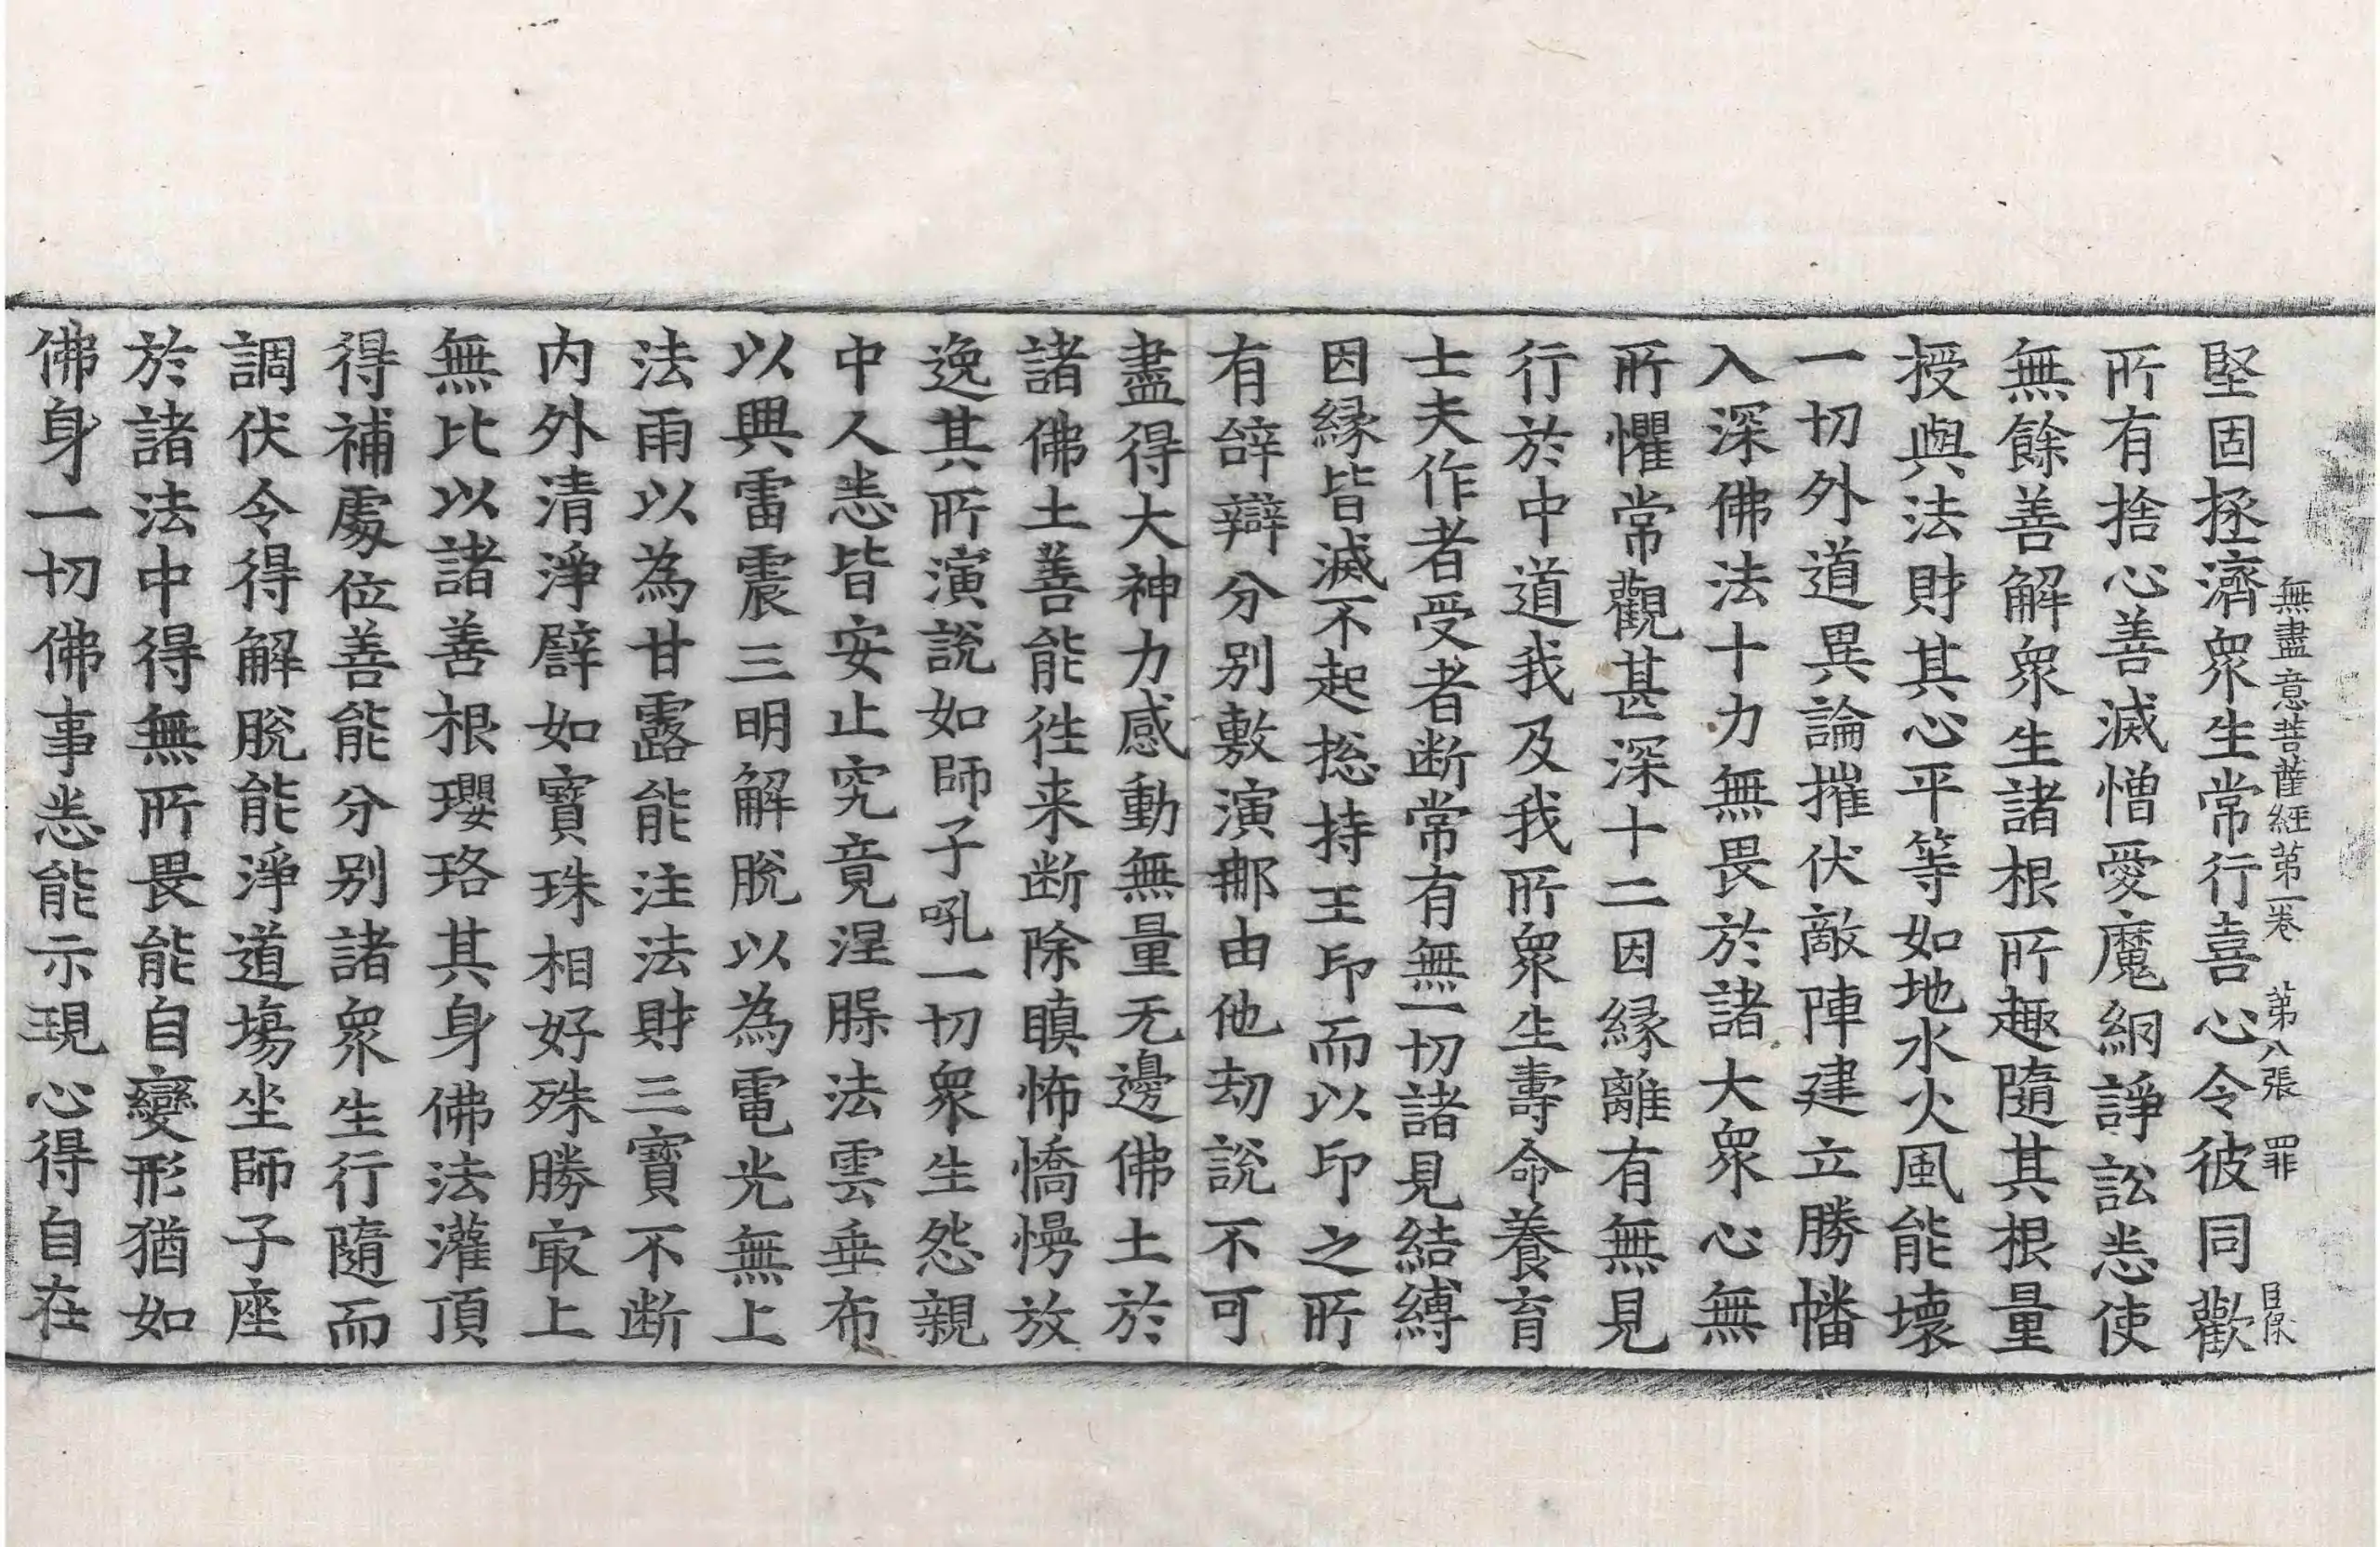 無盡意菩薩經第一卷 第八張 罪
堅固拯濟衆生常行喜心令彼同歡
所有捨心善滅憎愛魔網諍訟悉使
無餘善解衆生諸根所趣隨其根量
授與法財其心平等如地水火風能壞
一切外道異論摧伏敵陣建立勝幡
入深佛法十力無畏於諸大衆心無
所懼常觀甚深十二因縁離有無見
行於中道我及我所衆生壽命養育
士夫作者受者断常有無一切諸見結縛
因縁皆滅不起捴持王印而以印之所
有辝辯分别敷演郍由他劫説不可
盡得大神力感動無量无邊佛土於
諸佛土善能徃来断除瞋怖憍慢放
逸其所演説如師子吼一切衆生怨親
中人悉皆安止究竟涅槃法雲垂布
以興雷震三明解脫以為電光無上
法雨以為甘露能注法財三寶不断
内外清淨譬如寶珠相好殊勝㝡上
無比以諸善根瓔珞其身佛法灌頂
得補處位善能分别諸衆生行隨而
調伏令得解脫能淨道場坐師子座
於諸法中得無所畏能自變形猶如
佛身一切佛事悉能示現心得自在